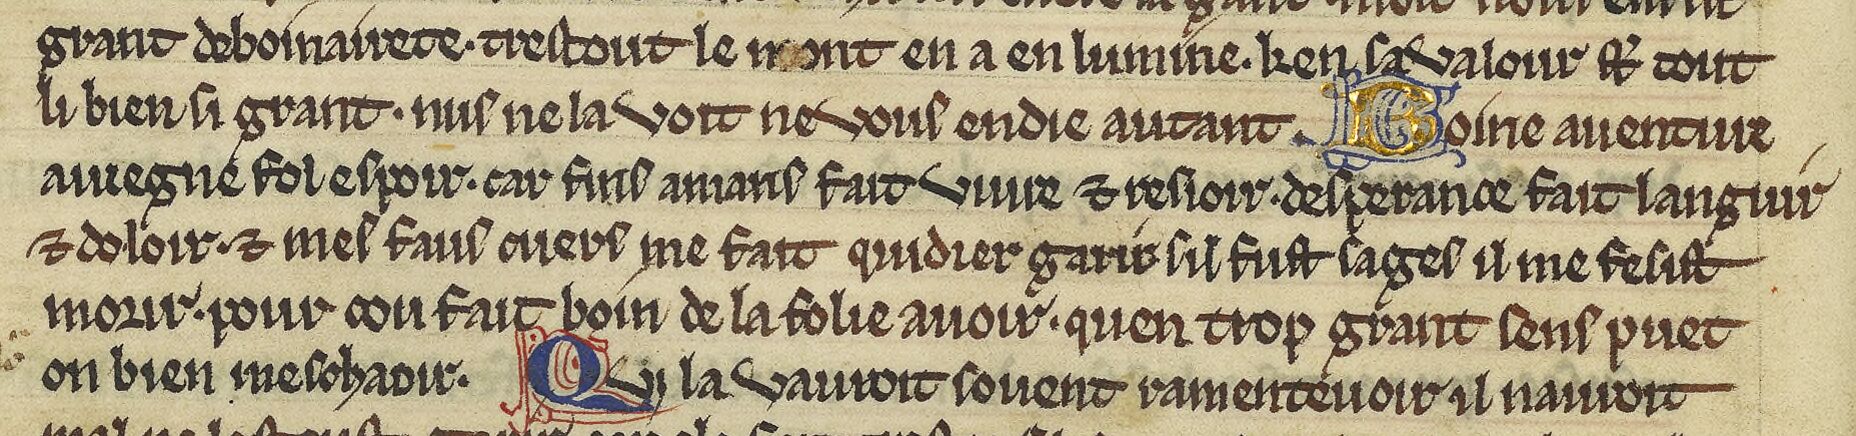 grant deboinairete. trestout le mont en a en lumine. ken sa valour st tout
li bien si grant. nus ne la voit ne vous en die autant. Boine auenture
auiegne fol espoir. car fins amans fait viure ⁊ resioir. desperance fait languir
⁊ doloir. ⁊ mes faus cuers me fait quidier garir sil fust sages il me fesist
morir. pour cou fait boin de la folie auoir. quen trop grant sens puet
on bien meschaoir. Qvi la vauroit souent ramenteuoir. il nauroit